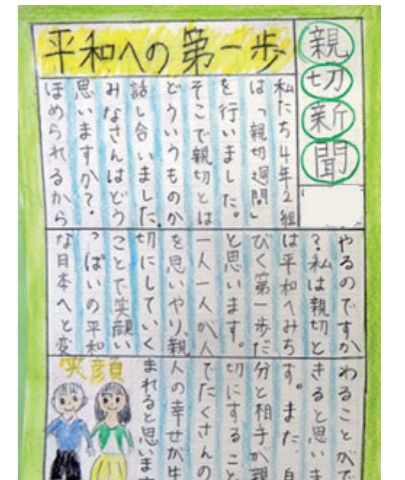 親切新聞
平和への第一歩
私たち4年2組
は「親切週間」
を行いました。
そこで親切とは
どういうものか
話し合いました。
みなさんはどう
思いますか?・
ほめられるから
やるのですか
?私は親切と
は平和へみち
びく第一歩だ
と思います。
一人一人が人
を思いやり、親
切にしていく
ことで笑顔い
っぱいの平和
な日本へと変
わることがで
きると思いま
す。また、自
分と相手が親
切にすること
でたくさんの
人の幸せが生
まれると思います
笑顔